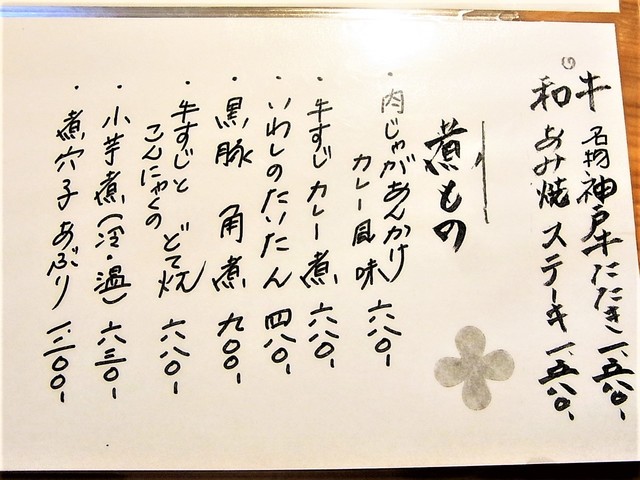 牛 名物 神戸牛たたき 一、五八〇、
和 あみ焼ステーキ 一、五八〇、
煮もの
・肉じゃがあんかけ
カレー風味 六八〇、
・牛すじカレー煮 六八〇、
・いわしのたいたん 四八〇、
・黒豚 角煮 九〇〇、
・牛すじと
こんにゃくの どて焼 六八〇、
・小芋煮(冷・温) 六三〇、
・煮穴子あぶり 一、二〇〇、